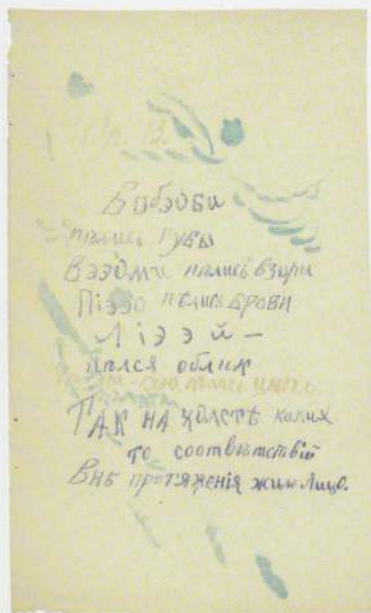 Бобэоби
пѣлись губы
Вээоми пѣлись взоры
Піээо пѣлись брови
Ліээй —
пѣлся облик
пѣлась цѣпь
ТАК НА холстѣ каких
то соотвѣтствій
Внѣ протяженія жило Лицо.